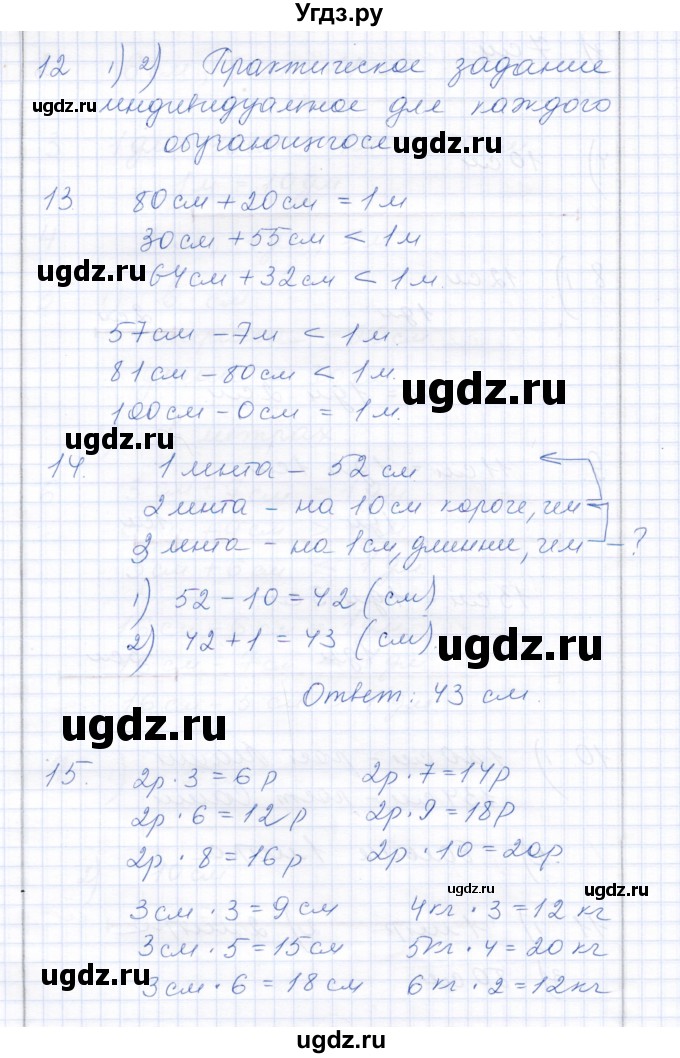 Угдз.ру
12 1) 2) Практическое задание
ugdz.ru индивидуальное для каждого
обучающегося ugdz.ru
13 80см + 20см = 1м
30см + 55см < 1м
ugdz.ru 64см + 32см < 1м.
57см - 7м < 1м.
81см - 80см < 1м.
ugdz.ru
100см - 0см = 1м.
ugdz.ru
14 1 лента - 52 см
2 лента - на 10см короче, чем
3 лента - на 1см, длинне, чем - ?
1) 52 - 10 = 42 (см)
2) 42 + 1 = 43 (см).
ugdz.ru
Ответ: 43 см.
ugdz.ru
15. 2р · 3 = 6р 2р · 7 = 14р
2р · 6 = 12р 2р · 9 = 18р
2р · 8 = 16р 2р · 10 = 20р.
ugdz.ru ugdz.ru
3см · 3 = 9см 4кг · 3 = 12 кг
3см · 5 = 15см 5кг · 4 = 20 кг
ugdz.ru 3см · 6 = 18см 6кг · 2 = 12кг
ugdz.ru